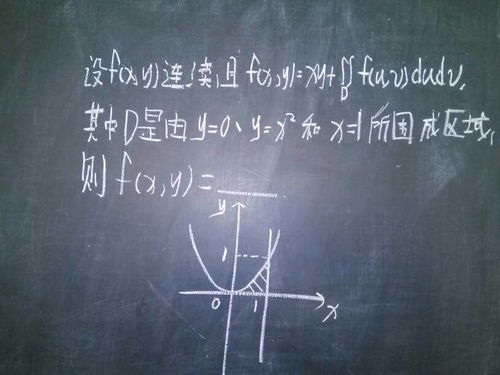 设f(x,y)连续,且 f(x,y)=xy+∬f(u,v)dudv,
D
其中D是由 y=0、y=x²和 x=1所围成区域,
则 f(x,y)=
y
1
0 1 x